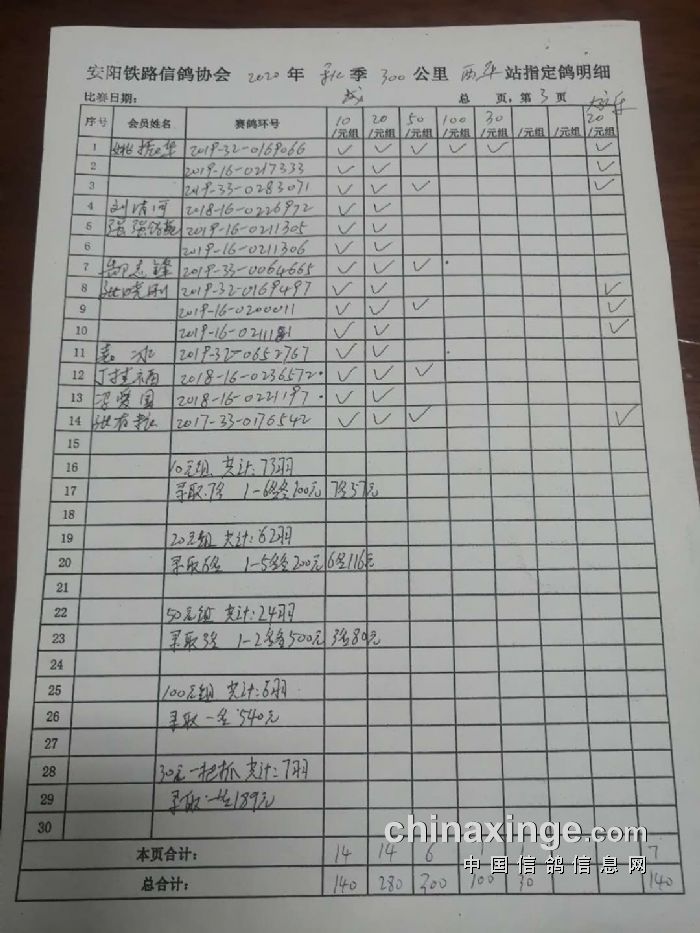 安阳铁路信鸽协会 2020 年 秋 季 300 公里 西华 站指定鸽明细
比赛日期: 成 总 页,第 3 页
序号 会员姓名 赛鸽环号 10/元组 20/元组 50/元组 100/元组 30/元组 /元组 /元组 20/元组
1 2019-32-0169066 ✓ ✓ ✓ ✓ ✓ ✓
2 2019-16-0217333 ✓ ✓ ✓
3 2019-33-0283071 ✓ ✓ ✓ ✓
4 刘清河 2018-16-0226972 ✓ ✓
5 2019-16-0211305 ✓ ✓
6 2019-16-0211306 ✓ ✓
7 郜志锋 2019-33-0064665 ✓ ✓ ✓
8 张晓刚 2019-32-0169497 ✓ ✓ ✓
9 2019-16-0200011 ✓ ✓ ✓ ✓
10 2019-16-0211181 ✓ ✓ ✓
11 袁冰 2019-32-0652767 ✓ ✓
12 丁桂福 2018-16-0236572 ✓ ✓ ✓
13 2018-16-0221197 ✓ ✓
14 2017-33-0176542 ✓ ✓ ✓ ✓
15
16 10元组 共计:73羽
17 录取:7名 1-6名各100元 7名57元
18
19 20元组 共计:62羽
20 录取6名 1-5名各200元 6名116元
21
22 50元组 共计:24羽
23 录取3名 1-2名各500元 3名80元
24
25 100元组 共计:6羽
26 录取一名540元
27
28 30元一把抓 共计:7羽
29 录取一名189元
30
本页合计: 14 14 6 1 1 7
总合计: 140 280 300 100 30 140
chinaxinge.com
中国信鸽信息网